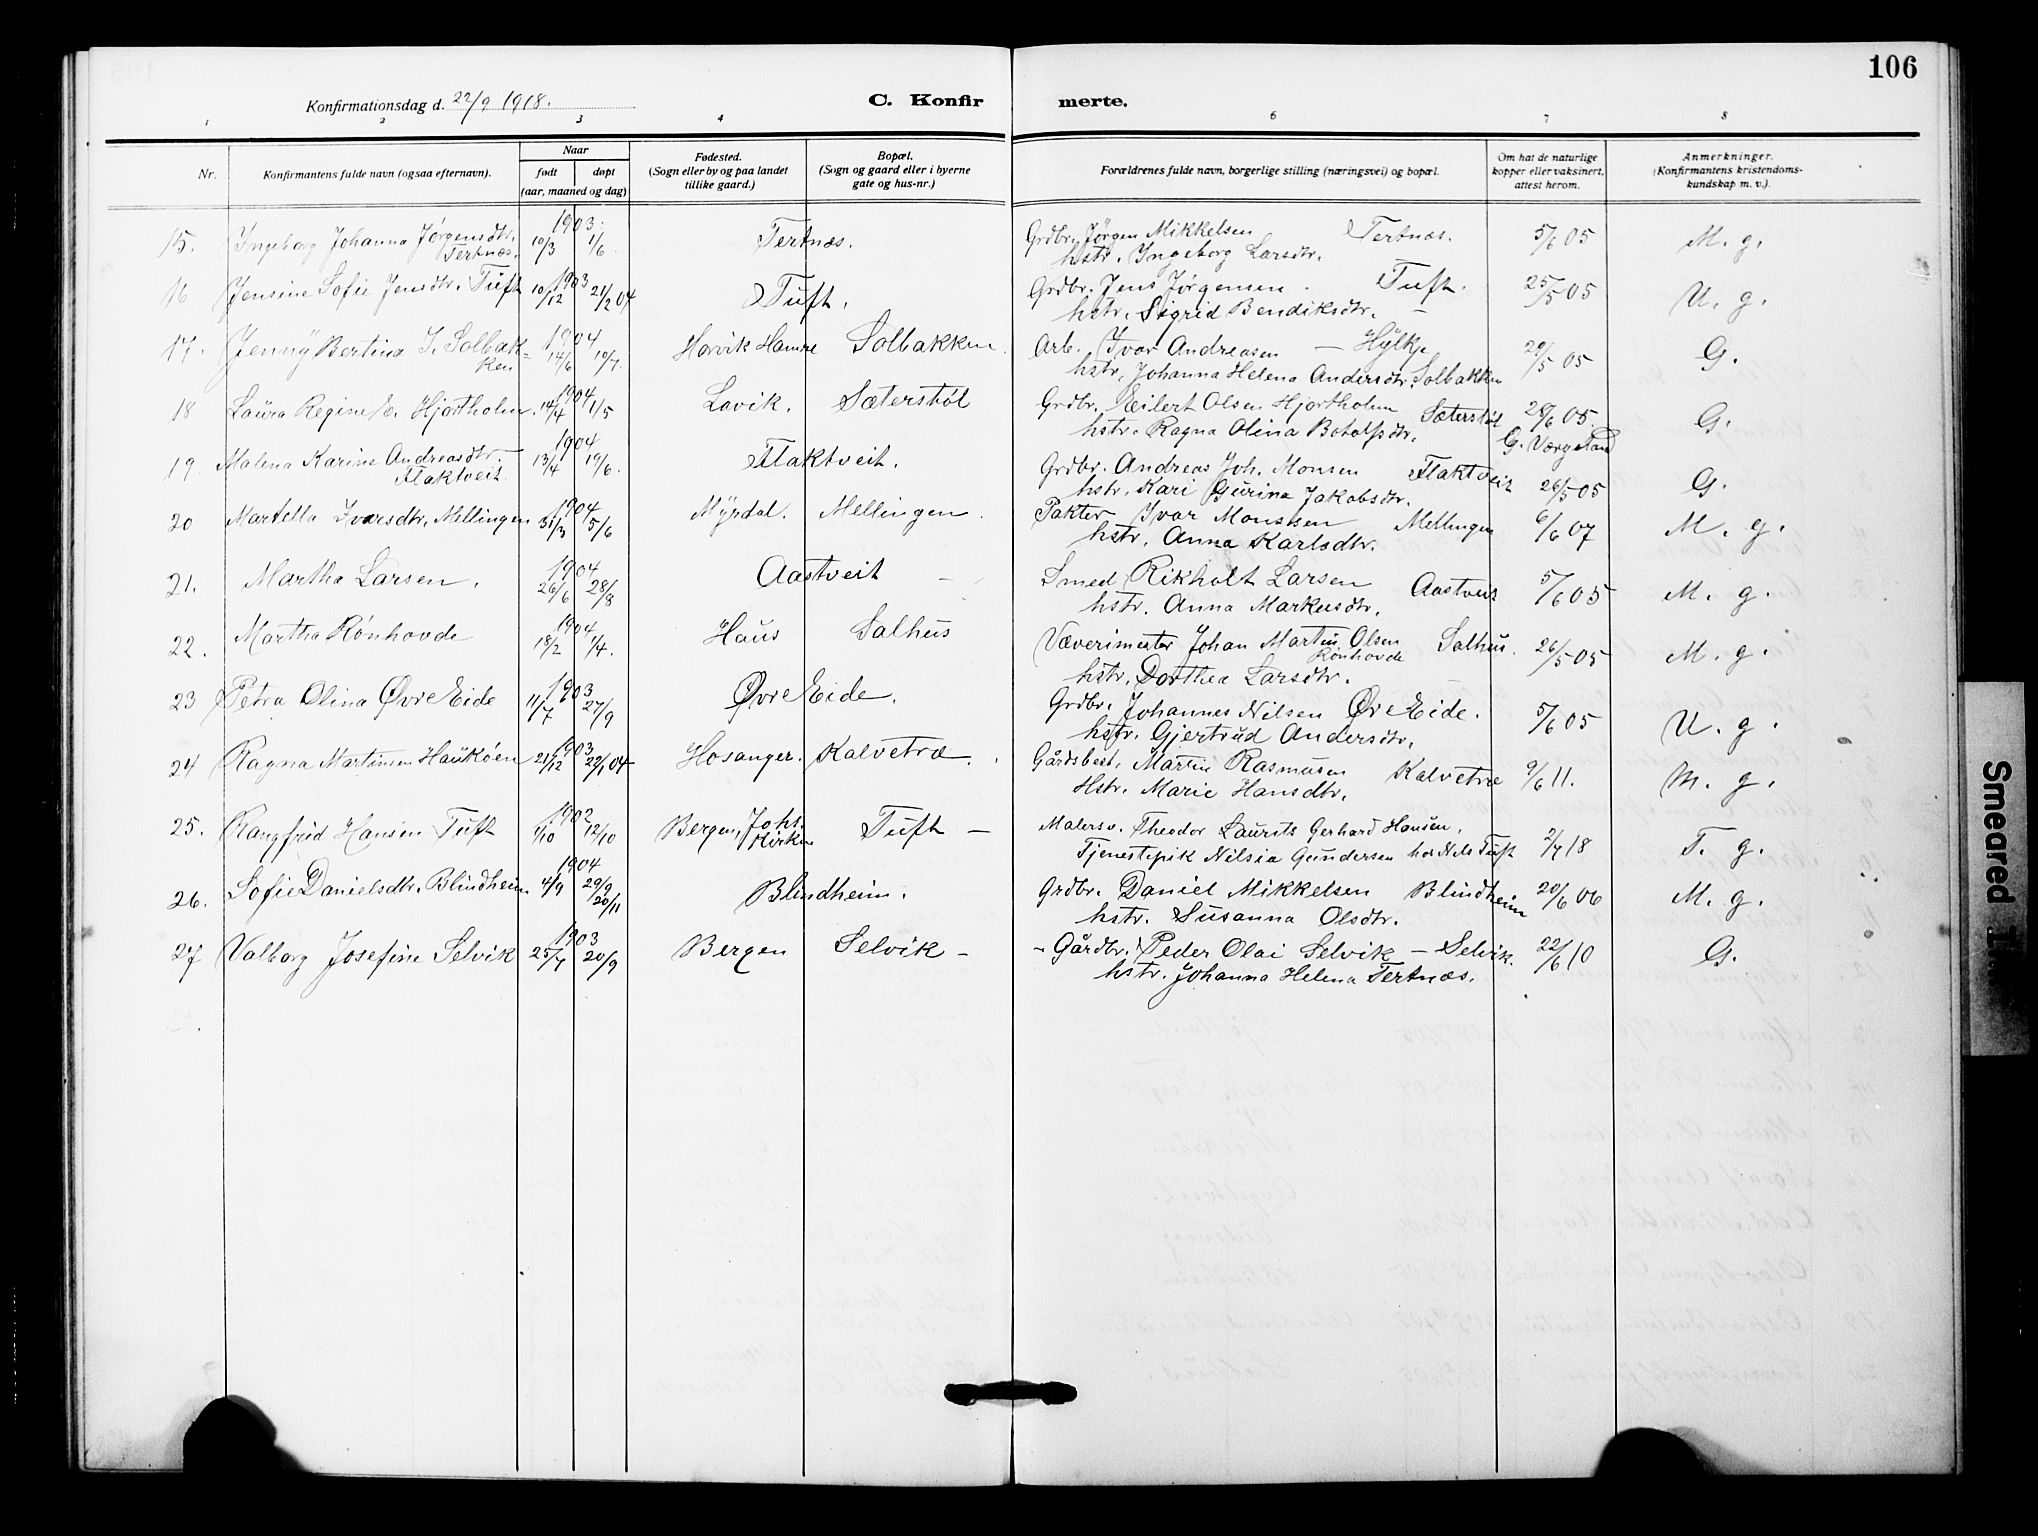 106
Konfirmationsdag d. 22/9 1918.
C. Konfir merte.
1 2 3 4 6 7 8
Nr.
Konfirmantens fulde navn (ogsaa efternavn).
Naar
født døpt
(aar, maaned og dag)
Fødested.
(Sogn eller by og paa landet
tillike gaard.)
Bopæl.
(Sogn og gaard eller i byerne
gate og hus-nr.)
Forældrenes fulde navn, borgerlige stilling (næringsvei) og bopæl.
Om hat de naturlige
kopper eller vaksinert,
attest herom.
Anmerkninger.
(Konfirmantens kristendoms-
kundskap m. v.).
1903
15. Ingeborg Johanna Jørgensdtr. 10/3 1/6 Tertnæs. Grdbr. Jørgen Mikkelsen Tertnæs. 5/6 05 M. g.
Tertnæs. hstr. Ingeborg Larsdtr.
1903
16 Jensine Sofie Jensdtr. Tuft 10/12 21/2 04 Tuft. Grdbr. Jens Jørgensen Tuft. 25/5 05 U. g.
hstr. Sigrid Bendiksdtr.
1904
17. Jenny Bertina I. Solbak- 14/6 10/7. Horvik Hamre Solbakken. Arb. Ivar Andreasen — Hylkje 29/5 05 G.
ken hstr. Johanna Helena Andersdtr. Solbakken
1904
18 Laura Regine E. Hjortholm. 14/4 1/5 Lavik. Sæterstøl Grdbr. Eilert Olsen Hjortholm Sæterstøl 26/6 05. G.
hstr. Ragna Olina Botolfsdtr. G. Værgeland
1904
19. Malena Karine Andreasdtr. 13/4 19/6. Flaktveit. Grdbr. Andreas Joh. Monsen Flaktveit 26/5 05 G.
Flaktveit. hstr. Kari Gurina Jakobsdtr.
1904
20 Martella Ivarsdtr. Mellingen 31/3 5/6 Myrdal. Mellingen. Pakter Ivar Monssen Mellingen 6/6 07 M. g.
hstr. Anna Karlsdtr.
1904
21. Martha Larsen. 26/6 28/8 Aastveit — Smed Rikholt Larsen Aastveit 5/6 05 M. g.
hstr. Anna Markusdtr.
1904
22. Martha Rønhovde 18/2 1/4. Haus Salhus Væverimester Johan Martin Olsen Salhus. 26/5 05 M. g.
Rønhovde
hstr. Dorthea Larsdtr.
1903
23 Petra Olina Øvre Eide 11/7 27/9 Øvre Eide. Grdbr. Johannes Nilsen Øvr Eide. 5/6 05 U. g.
hstr. Gjertrud Andersdtr.
1903
24 Ragna Martinsen Haukøen 21/12 22/1 04 Hosanger. Kalvetræ. Gårdsbest. Martin Rasmusen Kalvetræ 9/6 11. M. g.
Hstr. Marie Hansdtr.
1902
25. Rangfrid Hansen Tuft 1/10 12/10 Bergen, Johs. Tuft — Malersv. Theodor Laurits Gerhard Hansen. 2/7 18 T. g.
kirken Tjenestepik Nilsia Gundersen hos Nils Tuft
1904
26. Sofie Danielsdtr. Blindheim. 4/9 29/9 Blindheim. Grdbr. Daniel Mikkelsen Blindheim 20/6 06 M. g.
20/11 hstr. Susanna Olsdtr.
1903
27 Valborg Josefine Selvik 25/7 20/9 Bergen Selvik — Gårdbr. Peder Olai Selvik — Selvik. 22/6 10 G.
hstr. Johanna Helena Tertnæs.
Smeared